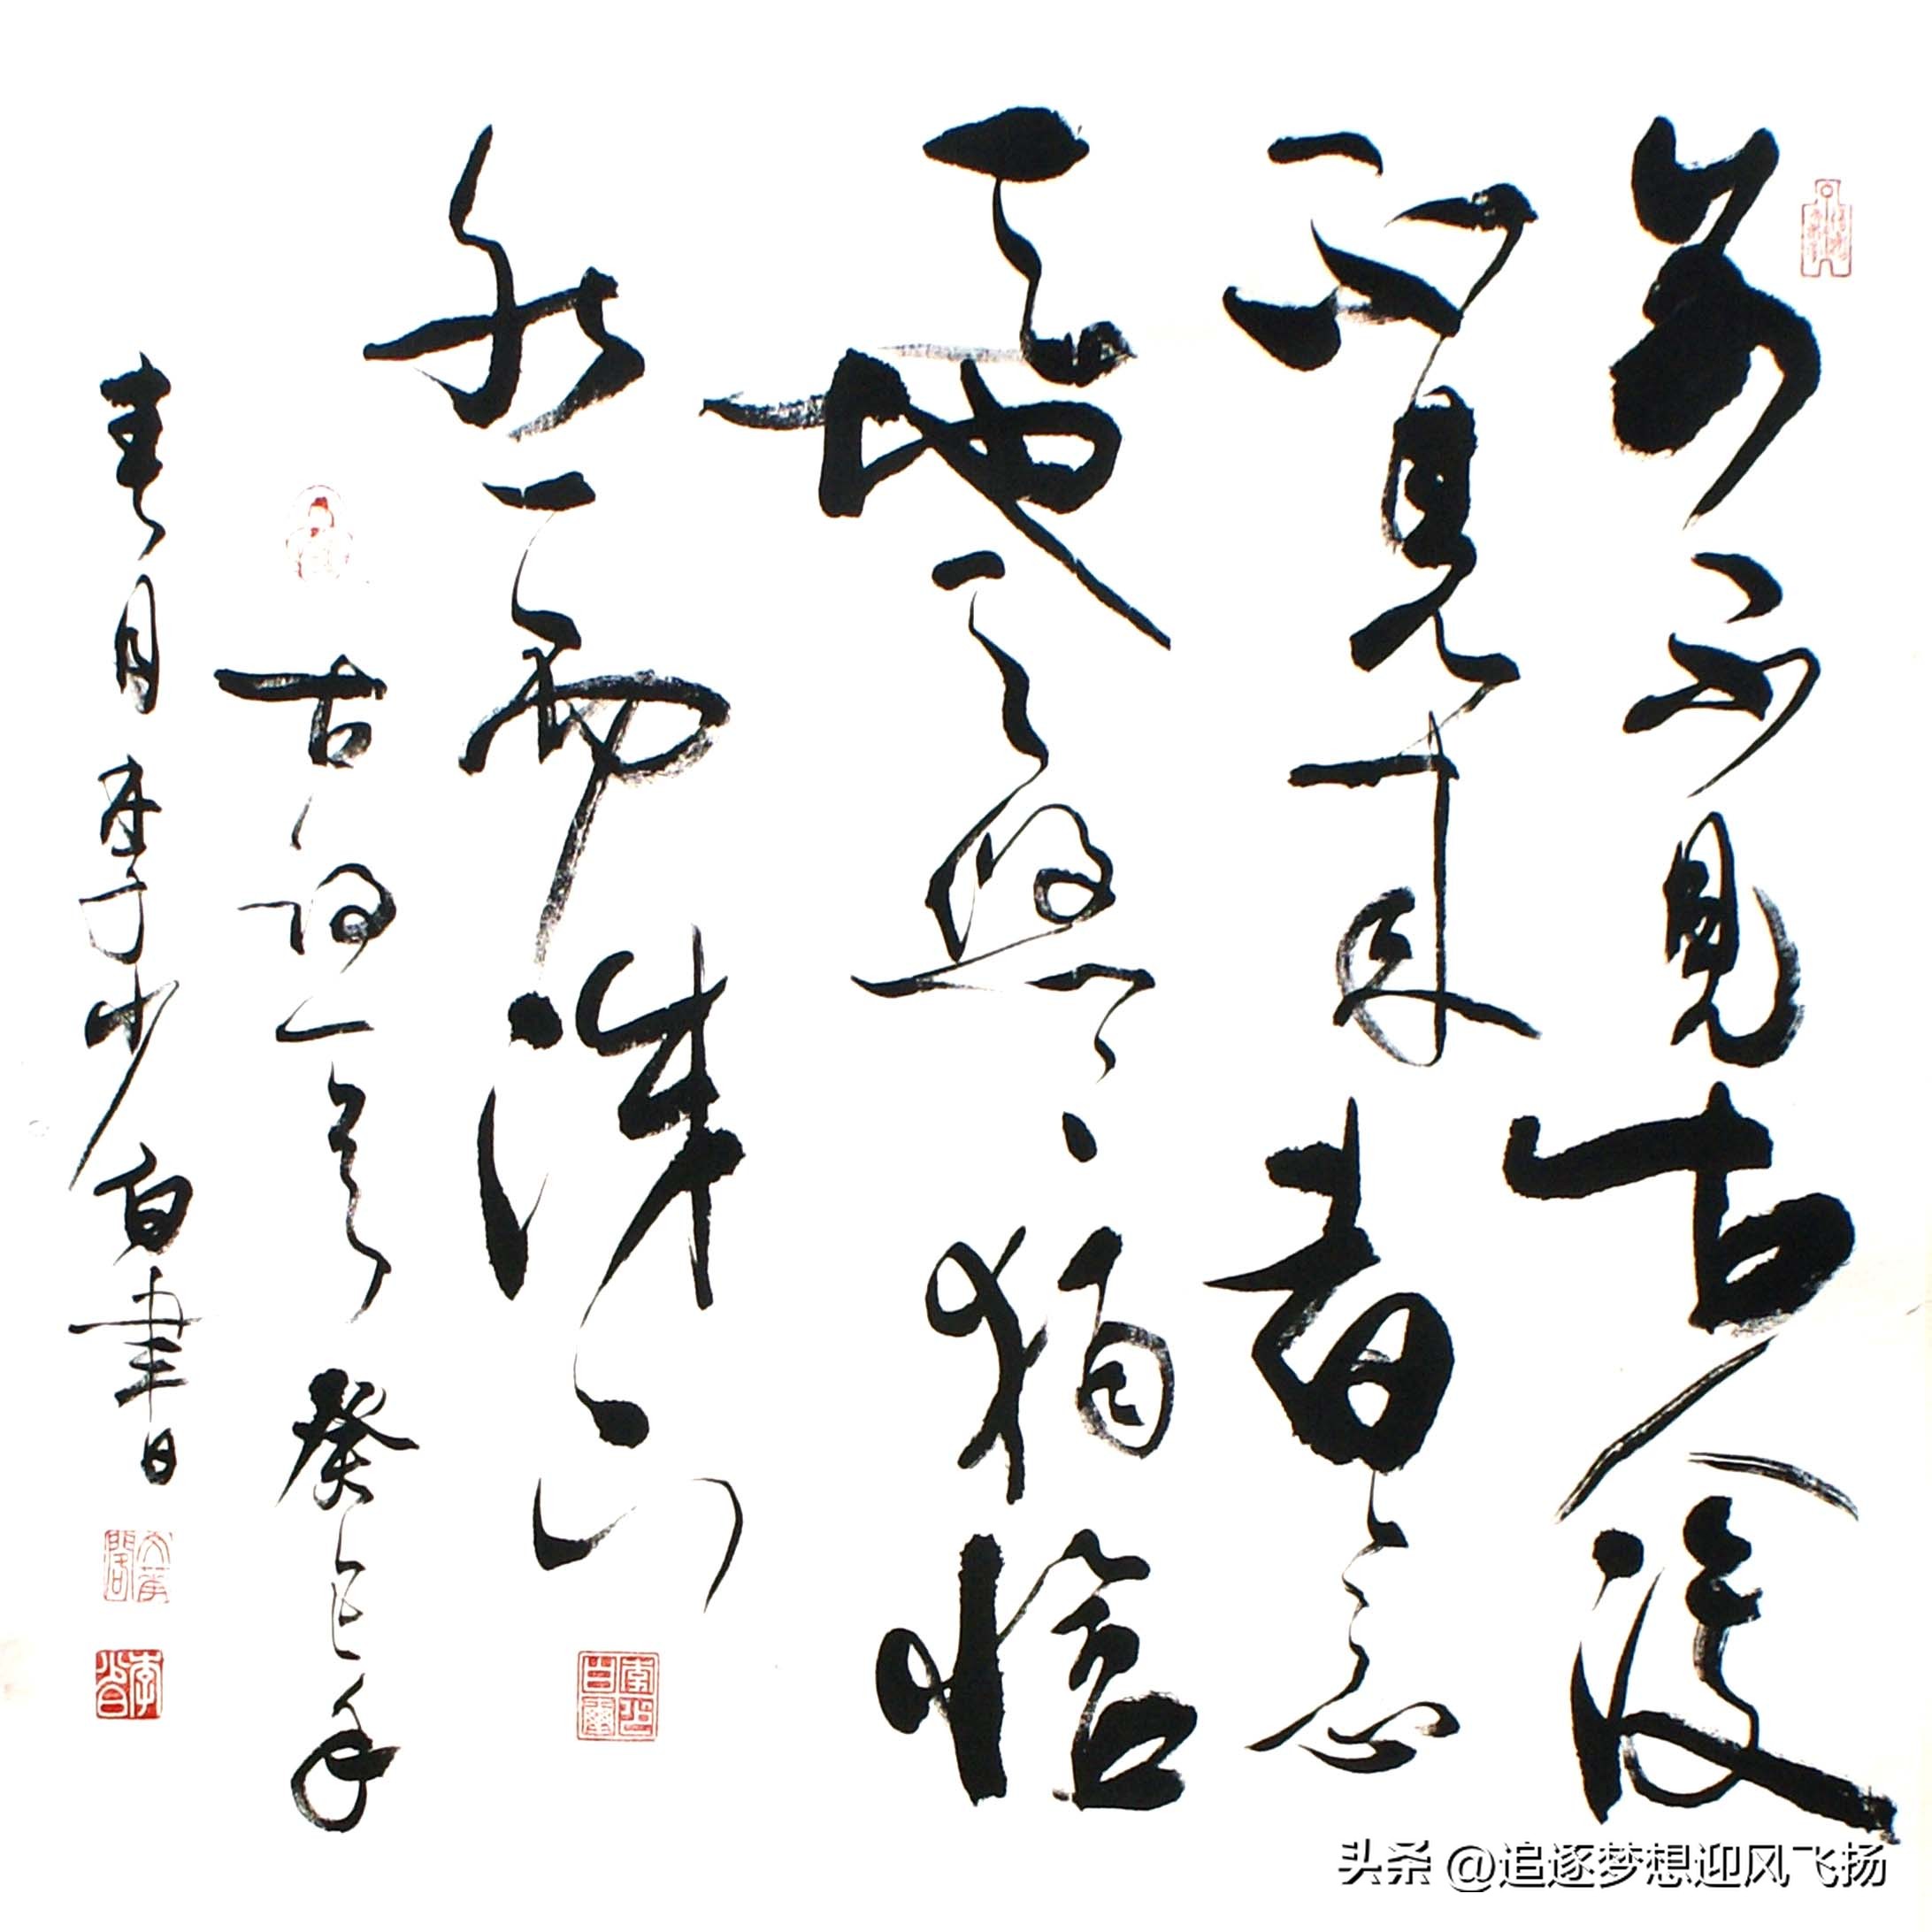 前不见古人后
不见来者念
天地之悠悠独怆
然而涕下
古词一首 癸巳年
春月李少白书
头条 @追逐梦想迎风飞扬